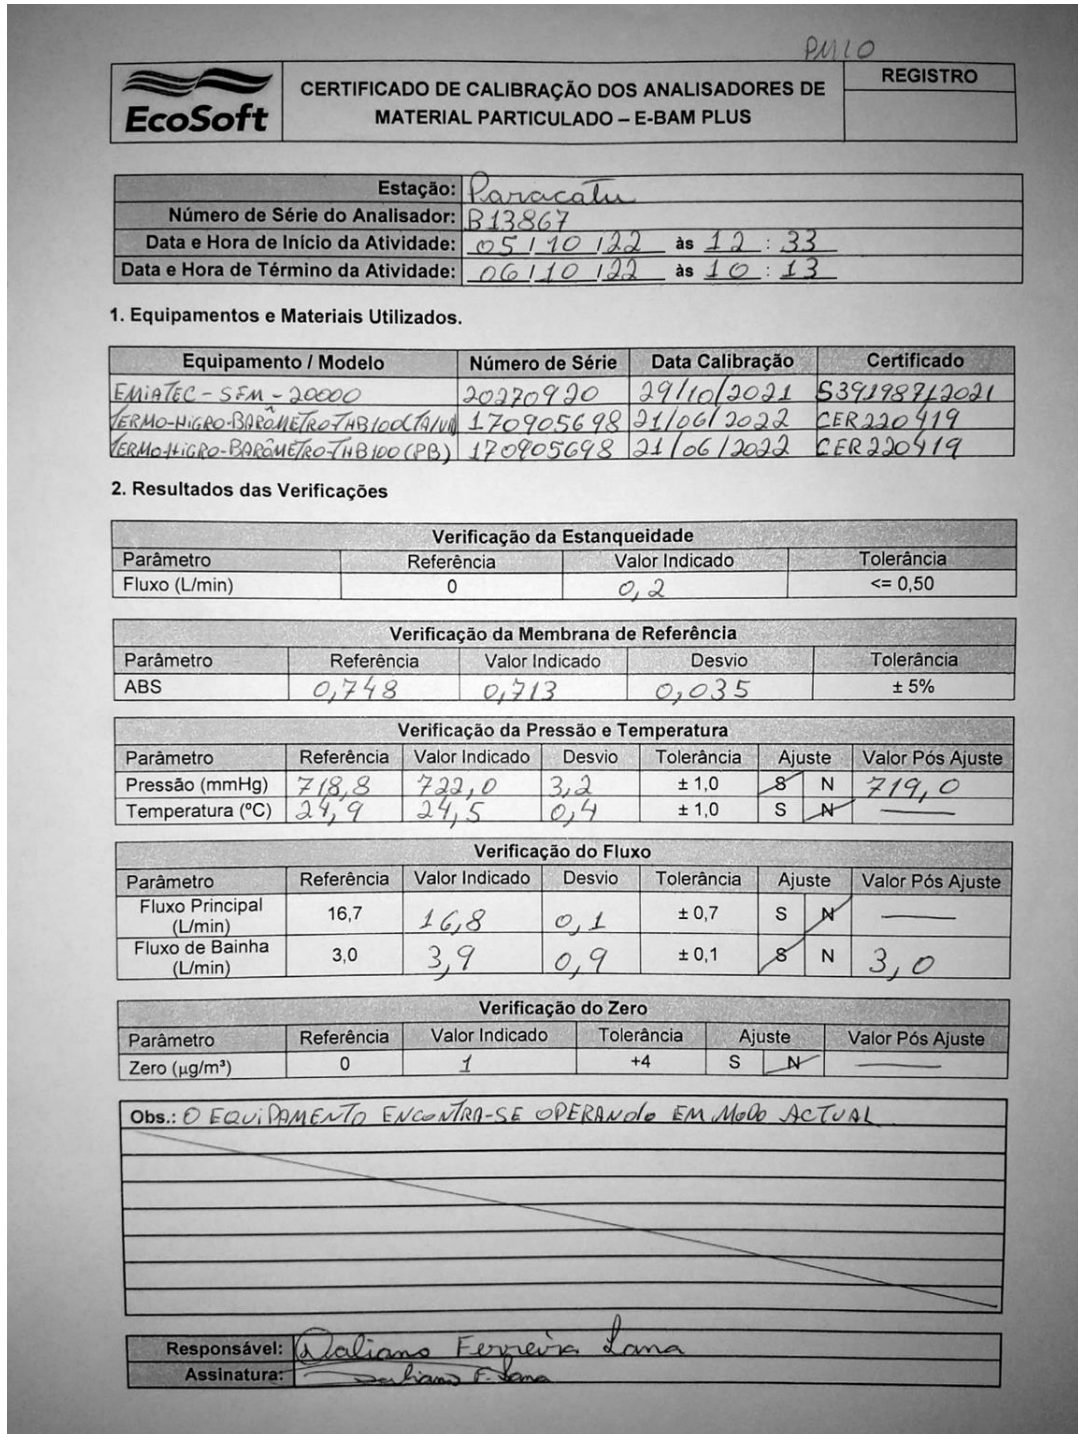 PM10
EcoSoft
CERTIFICADO DE CALIBRAÇÃO DOS ANALISADORES DE
MATERIAL PARTICULADO – E-BAM PLUS
REGISTRO
Estação: Paracatu
Número de Série do Analisador: B13867
Data e Hora de Início da Atividade: 05/10/22 às 12:33
Data e Hora de Término da Atividade: 06/10/22 às 10:13
1. Equipamentos e Materiais Utilizados.
Equipamento / Modelo Número de Série Data Calibração Certificado
EMiATEC-SFM-20000 20270920 29/10/2021 S391987/2021
TERMO-HiGRO-BARÔMETRO-THB100(TA/UR) 170905698 21/06/2022 CER220419
TERMO-HiGRO-BARÔMETRO-THB100(PB) 170905698 21/06/2022 CER220419
2. Resultados das Verificações
Verificação da Estanqueidade
Parâmetro Referência Valor Indicado Tolerância
Fluxo (L/min) 0 0,2 <= 0,50
Verificação da Membrana de Referência
Parâmetro Referência Valor Indicado Desvio Tolerância
ABS 0,748 0,713 0,035 ± 5%
Verificação da Pressão e Temperatura
Parâmetro Referência Valor Indicado Desvio Tolerância Ajuste Valor Pós Ajuste
Pressão (mmHg) 718,8 722,0 3,2 ± 1,0 S N 719,0
Temperatura (ºC) 24,9 24,5 0,4 ± 1,0 S N
Verificação do Fluxo
Parâmetro Referência Valor Indicado Desvio Tolerância Ajuste Valor Pós Ajuste
Fluxo Principal
(L/min) 16,7 16,8 0,1 ± 0,7 S N
Fluxo de Bainha
(L/min) 3,0 3,9 0,9 ± 0,1 S N 3,0
Verificação do Zero
Parâmetro Referência Valor Indicado Tolerância Ajuste Valor Pós Ajuste
Zero (µg/m³) 0 1 +4 S N
Obs.: O EQUiPAMENTO ENCONTRA-SE OPERANDO EM MODO ACTUAL
Responsável: Daliano Ferreira Lana
Assinatura: Daliano F. Lana